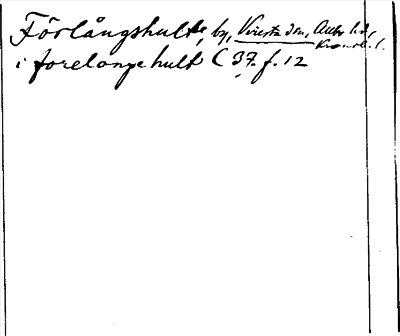 Förlångshult, by, Virestads sn, Allbo hd, Kronob. l.
i forelangehult C 37. f. 12